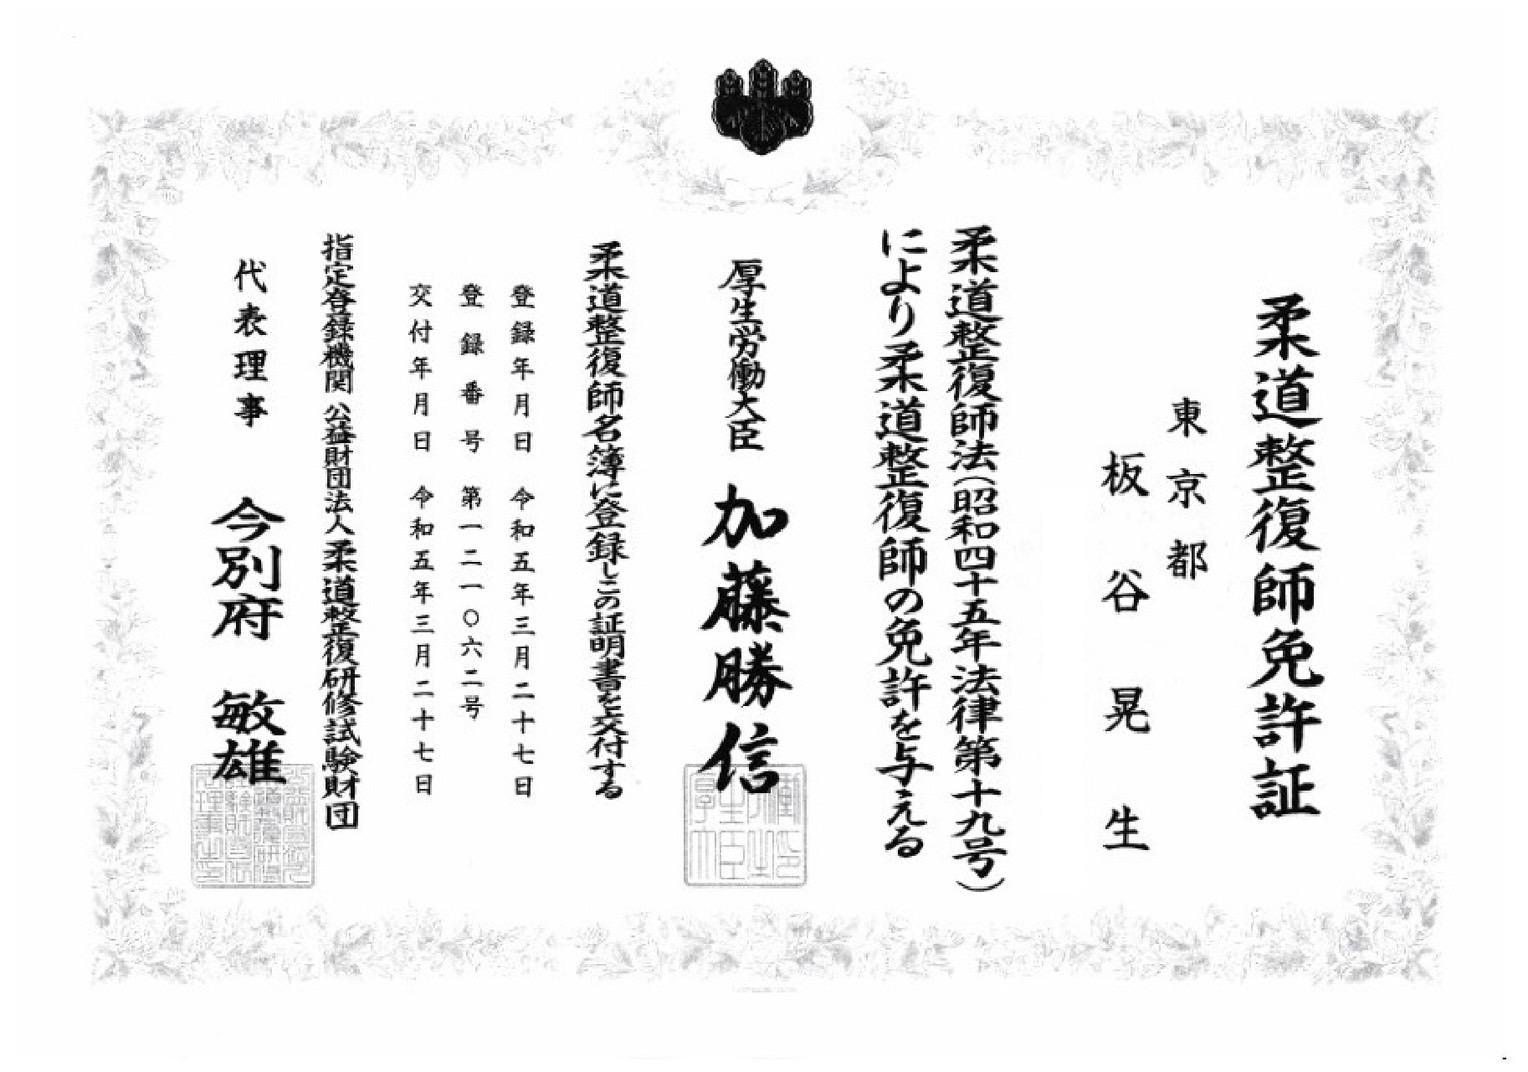 柔道整復師免許証
東京都
板谷晃生
柔道整復師法(昭和四十五年法律第十九号)
により柔道整復師の免許を与える
厚生労働大臣 加藤勝信
柔道整復師名簿に登録しこの証明書を交付する
登録年月日 令和五年三月二十七日
登録番号 第一二一〇六二号
交付年月日 令和五年三月二十七日
指定登録機関 公益財団法人柔道整復研修試験財団
代表理事 今別府 敏雄